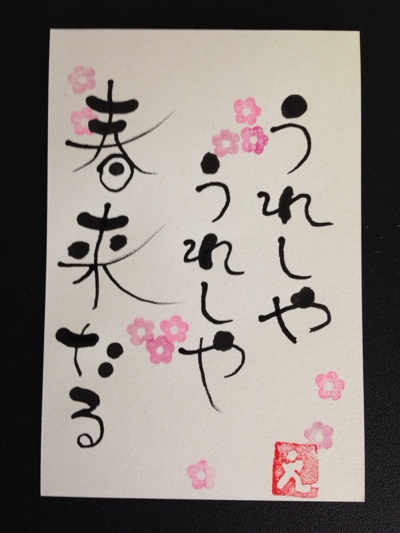 うれしや
うれしや
春来たる